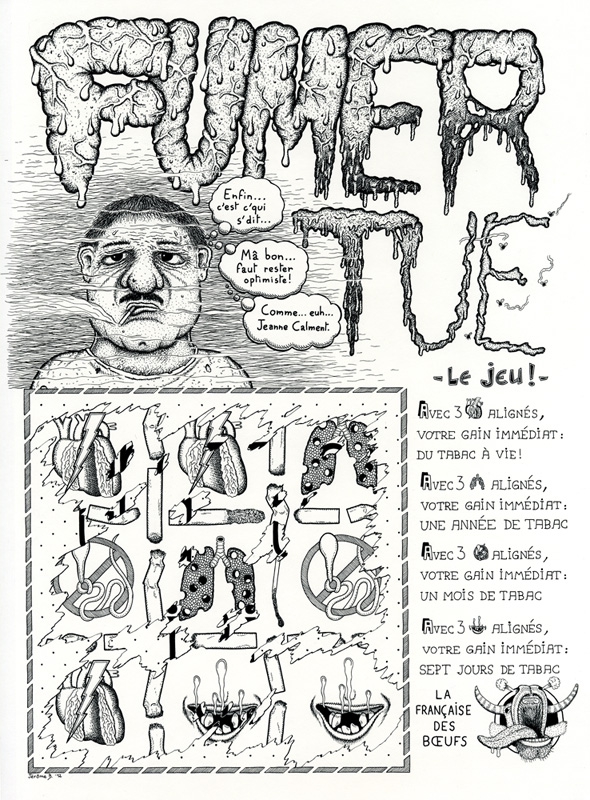 FUMER
TUE
Enfin...
c'est c'qui
s'dit...
Ma bon...
faut rester
optimiste!
Comme... euh...
Jeanne Calment.
-Le jeu!-
AVEC 3 ALIGNÉS,
VOTRE GAIN IMMÉDIAT:
DU TABAC À VIE!
AVEC 3 ALIGNÉS,
VOTRE GAIN IMMÉDIAT:
UNE ANNÉE DE TABAC
AVEC 3 ALIGNÉS,
VOTRE GAIN IMMÉDIAT:
UN MOIS DE TABAC
AVEC 3 ALIGNÉS,
VOTRE GAIN IMMÉDIAT:
SEPT JOURS DE TABAC
LA
FRANÇAISE
DES
BŒUFS
Jérôme B. '12